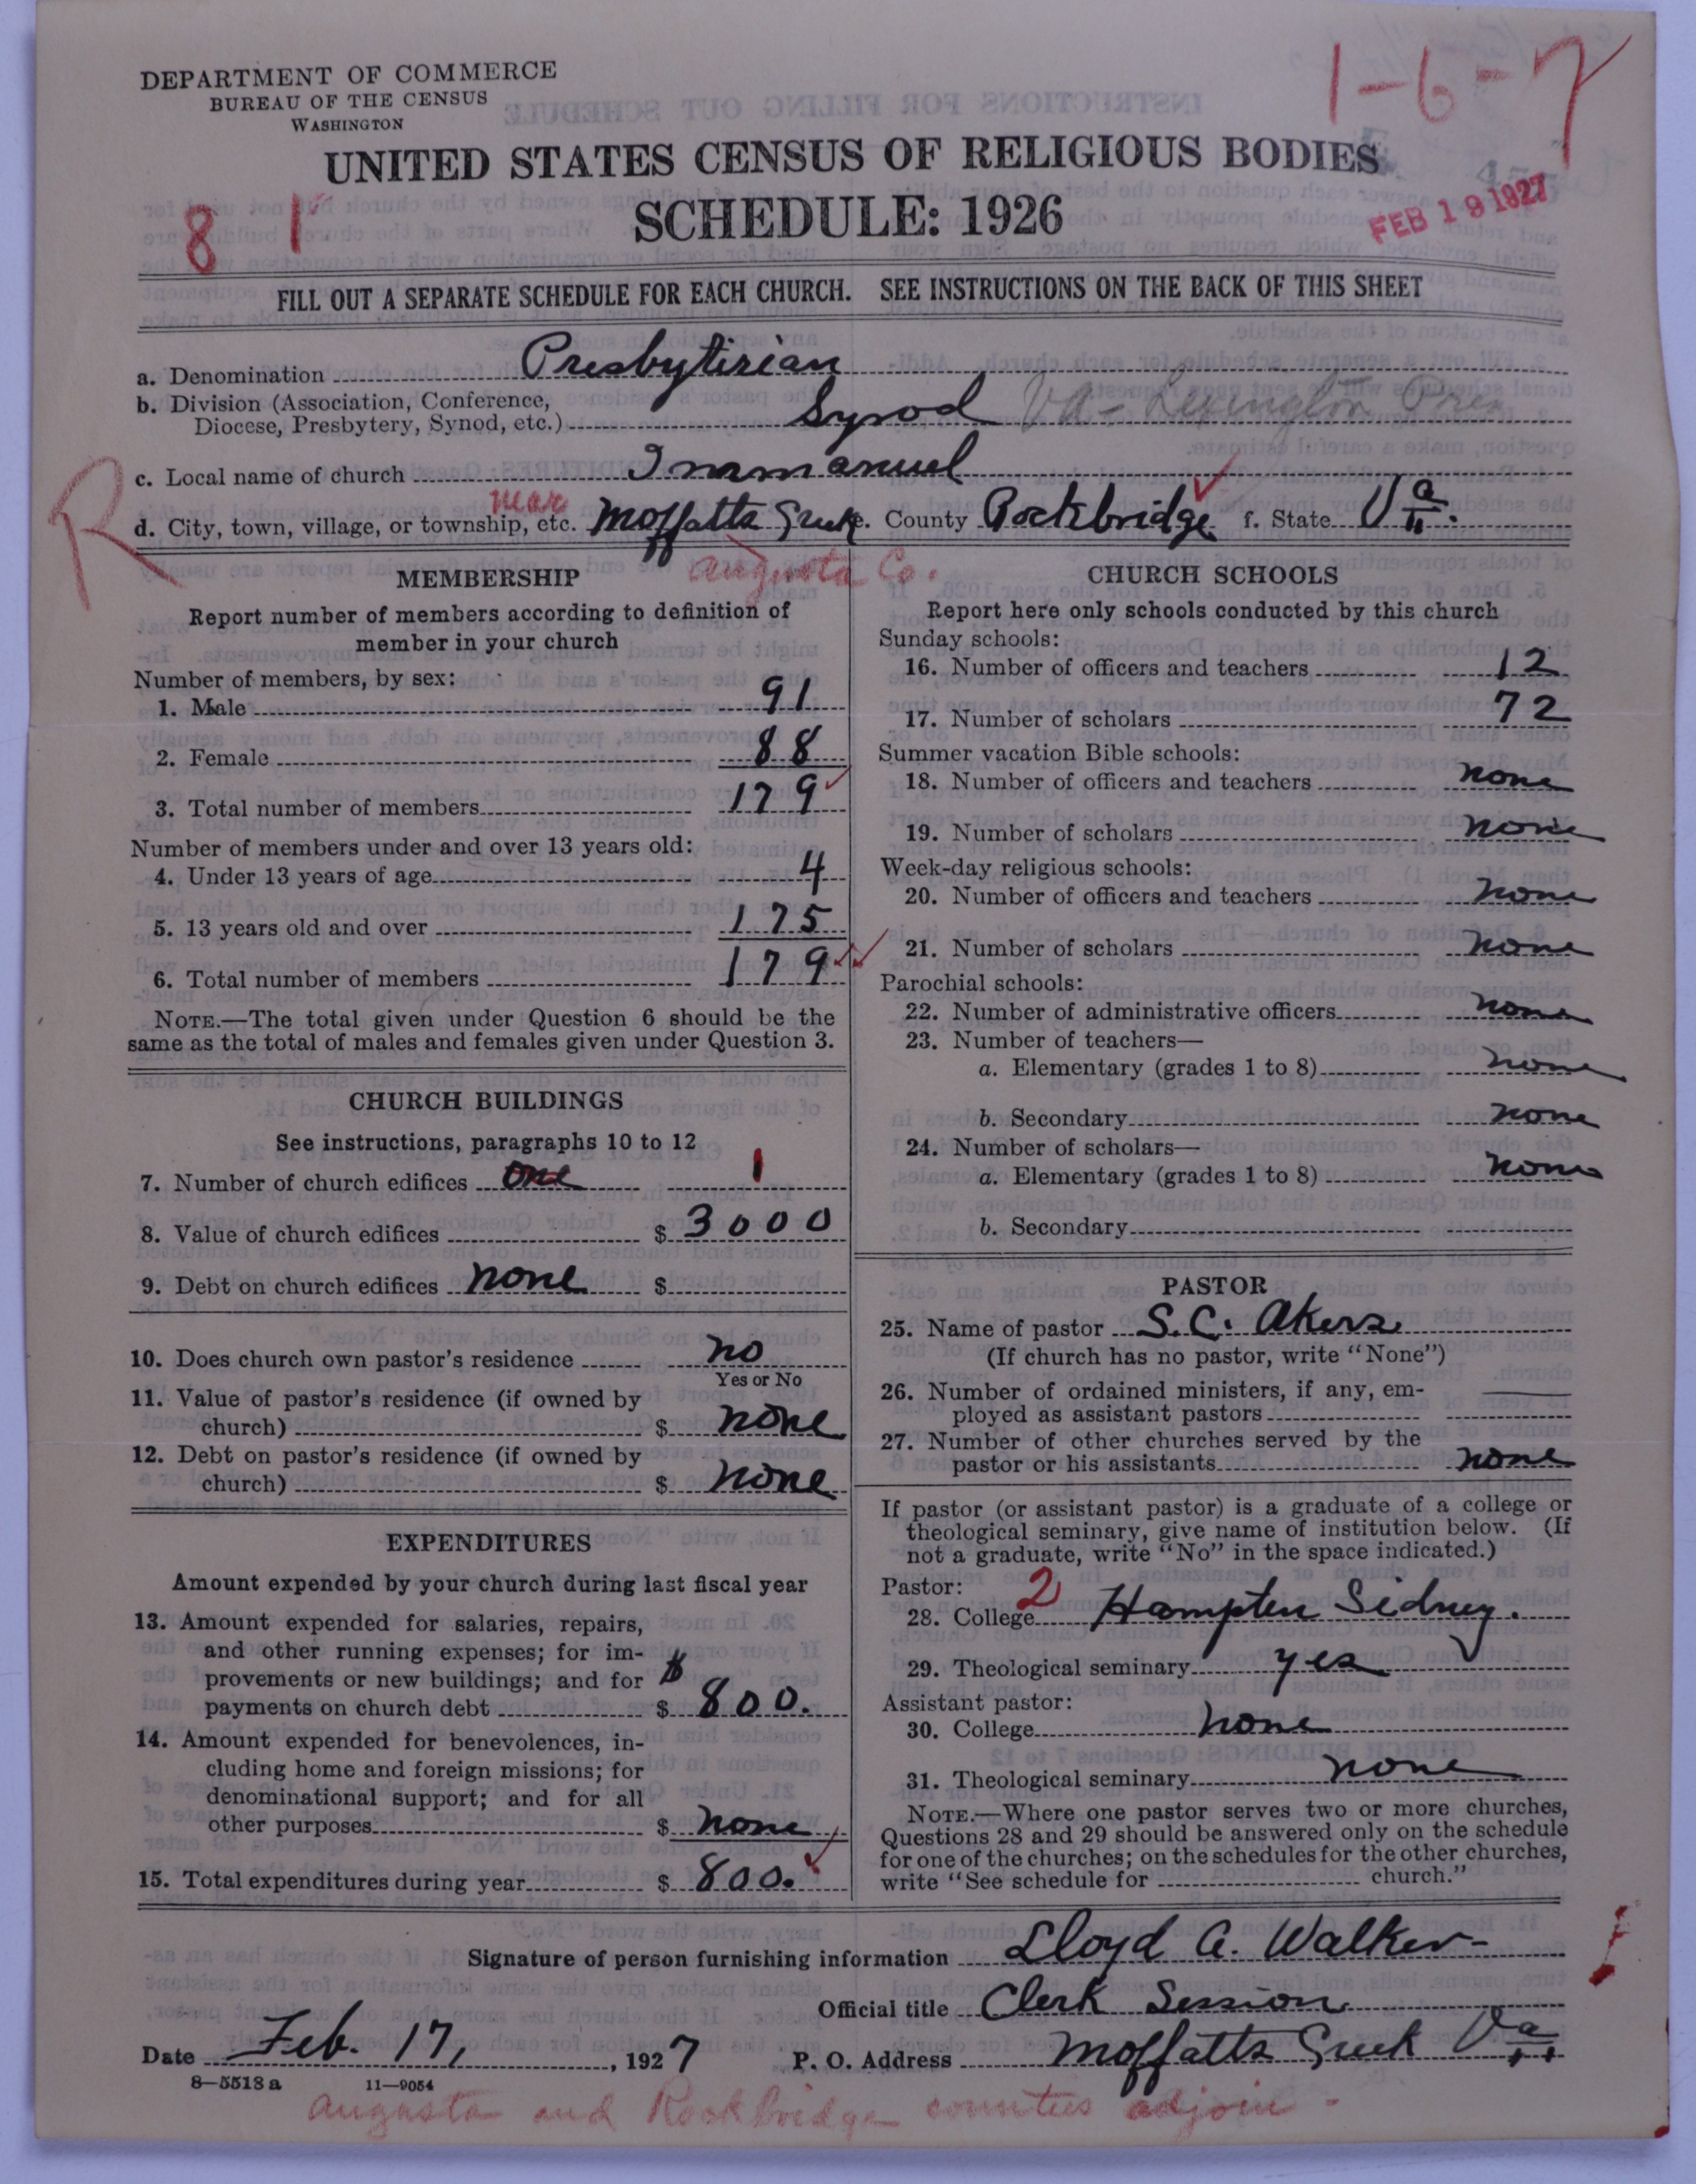 DEPARTMENT OF COMMERCE
BUREAU OF THE CENSUS
WASHINGTON
1-6-7
UNITED STATES CENSUS OF RELIGIOUS BODIES
8 1
SCHEDULE: 1926
FEB 19 1927
FILL OUT A SEPARATE SCHEDULE FOR EACH CHURCH. SEE INSTRUCTIONS ON THE BACK OF THIS SHEET
a. Denomination Presbytirian
b. Division (Association, Conference,
Diocese, Presbytery, Synod, etc.) Synod Va - Lexington Pres
c. Local name of church Immanuel
R
near
d. City, town, village, or township, etc. Moffatts Creek e. County Rockbridge f. State Va.
Augusta Co.
MEMBERSHIP
Report number of members according to definition of
member in your church
Number of members, by sex:
1. Male 91
2. Female 88
3. Total number of members 179
Number of members under and over 13 years old:
4. Under 13 years of age 4
5. 13 years old and over 175
6. Total number of members 179
NOTE.—The total given under Question 6 should be the
same as the total of males and females given under Question 3.
CHURCH BUILDINGS
See instructions, paragraphs 10 to 12
7. Number of church edifices one 1
8. Value of church edifices $ 3000
9. Debt on church edifices none $
10. Does church own pastor's residence no
Yes or No
11. Value of pastor's residence (if owned by
church) $ none
12. Debt on pastor's residence (if owned by
church) $ none
EXPENDITURES
Amount expended by your church during last fiscal year
13. Amount expended for salaries, repairs,
and other running expenses; for im-
provements or new buildings; and for $
payments on church debt $ 800.
14. Amount expended for benevolences, in-
cluding home and foreign missions; for
denominational support; and for all
other purposes $ none
15. Total expenditures during year $ 800.
CHURCH SCHOOLS
Report here only schools conducted by this church
Sunday schools:
16. Number of officers and teachers 12
17. Number of scholars 72
Summer vacation Bible schools:
18. Number of officers and teachers none
19. Number of scholars none
Week-day religious schools:
20. Number of officers and teachers none
21. Number of scholars none
Parochial schools:
22. Number of administrative officers none
23. Number of teachers—
a. Elementary (grades 1 to 8) none
b. Secondary none
24. Number of scholars—
a. Elementary (grades 1 to 8) none
b. Secondary
PASTOR
25. Name of pastor S.C. Akers
(If church has no pastor, write "None")
26. Number of ordained ministers, if any, em-
ployed as assistant pastors
27. Number of other churches served by the
pastor or his assistants none
If pastor (or assistant pastor) is a graduate of a college or
theological seminary, give name of institution below. (If
not a graduate, write "No" in the space indicated.)
Pastor: 2
28. College Hampten Sidney.
29. Theological seminary yes
Assistant pastor:
30. College none
31. Theological seminary none
NOTE.—Where one pastor serves two or more churches,
Questions 28 and 29 should be answered only on the schedule
for one of the churches; on the schedules for the other churches,
write "See schedule for church."
Signature of person furnishing information Lloyd A. Walker
Official title Clerk Session
Date Feb. 17, 1927 P. O. Address Moffatts Creek Va.
8-5518 a 11-9054
Augusta and Rockbridge counties adjoin -